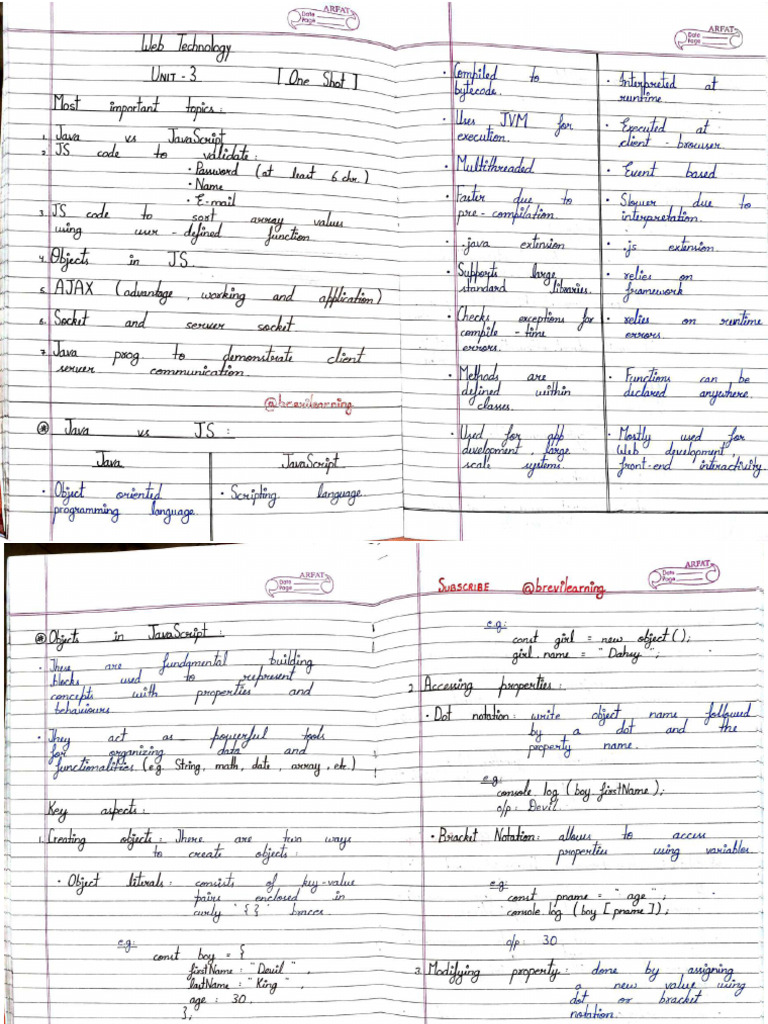 ARFAT
Date
Page
Web Technology
UNIT - 3 [One Shot]
Most important topics:
1. Java vs JavaScript
2. JS code to validate:
• Password (at least 6 chr.)
• Name
• E-mail
3. JS code to sort array values
using user-defined function.
4. Objects in JS.
5. AJAX (advantage, working and application)
6. Socket and server socket
7. Java prog. to demonstrate client
server communication.
@brevilearning
* Java vs JS:
Java JavaScript
• Object oriented
programming language.
• Scripting language.
ARFAT
Date
Page
• Compiled to
bytecode.
• Interpreted at
runtime
• Uses JVM for
execution.
• Executed at
client-browser
• Multithreaded
• Event based
• Faster due to
pre-compilation.
• Slower due to
interpretation.
• .java extension
• .js extension.
• Supports large
standard libraries.
• relies on
framework
• Checks exceptions for
compile-time
errors.
• relies on runtime
errors.
• Methods are
defined within
classes.
• Functions can be
declared anywhere.
• Used for app
development, large
scale systems.
• Mostly used for
Web development,
front-end interactivity.
ARFAT
Date
Page
* Objects in JavaScript:
• These are fundmental building
blocks used to represent
concepts with properties and
behaviours
• They act as powerful tools
for organizing data and
functionalities (e.g. String, math, date, array, etc.)
Key aspects:
1. Creating objects: There are two ways
to create objects:
• Object literals: consists of key-value
pairs enclosed in
curly "{}" braces
e.g:
const boy = {
firstName: "Devil",
lastName: "King",
age: 30.
};
ARFAT
Date
Page
SUBSCRIBE @brevilearning
e.g:
const girl = new object();
girl.name = "Dahsy";
2. Accessing properties:
• Dot notation: write object name followed
by a dot and the
property name.
e.g:
console.log (boy.firstName);
o/p: Devil.
• Bracket Notation: allows to access
properties using variables
e.g:
const pname = "age";
console.log (boy [pname]);
o/p: 30
3. Modifying property: done by assigning
a new value using
dot or bracket
notation.